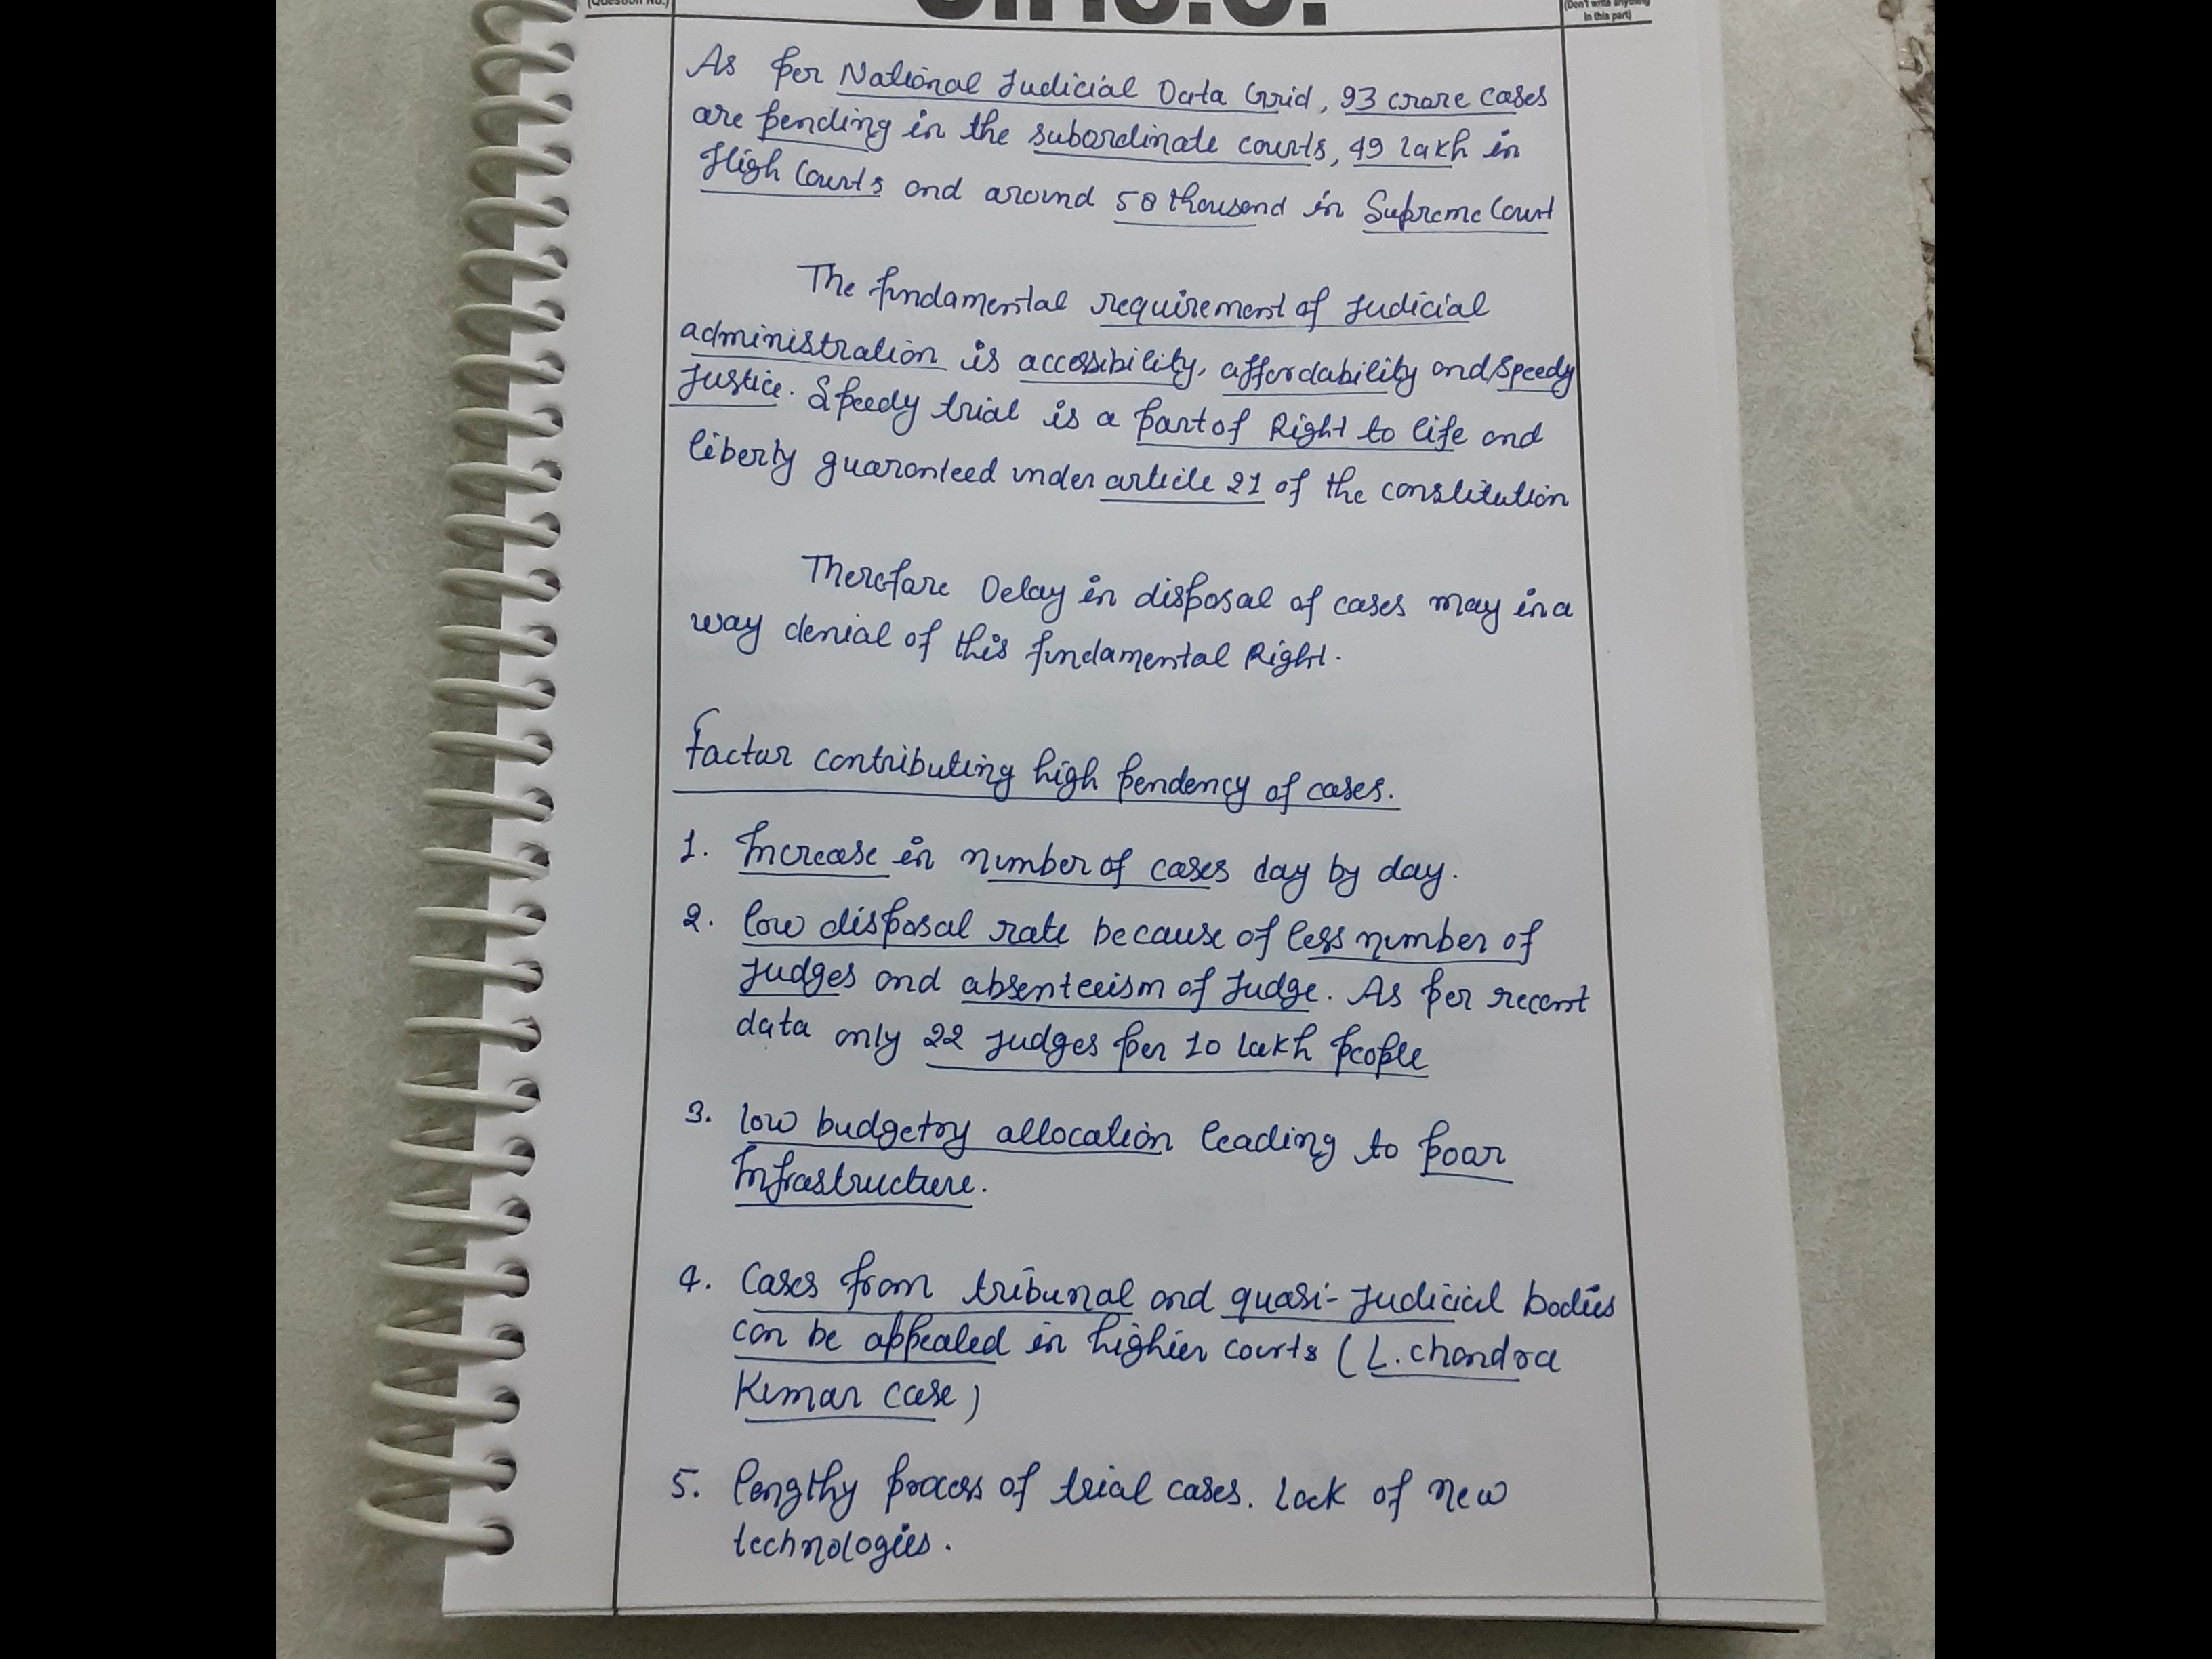 (Question No.)
(Don't write anything
in this part)
As per National Judicial Data Grid, 93 crore cases
are pending in the subordinate courts, 49 lakh in
High Courts and around 50 thousand in Supreme Court
The fundamental requirement of Judicial
administration is accessibility, affordability and speedy
Justice. Speedy trial is a part of Right to life and
liberty guaranteed under article 21 of the constitution
Therefore Delay in disposal of cases may in a
way denial of this fundamental Right.
factor contributing high pendency of cases.
1. Increase in number of cases day by day.
2. low disposal rate because of less number of
Judges and absenteeism of Judge. As per recent
data only 22 judges per 10 lakh people
3. low budgetry allocation leading to poor
Infrastructure.
4. Cases from tribunal and quasi-Judicial bodies
can be appealed in highier courts (L. chandra
Kumar case)
5. lengthy process of trial cases. Lack of new
technologies.